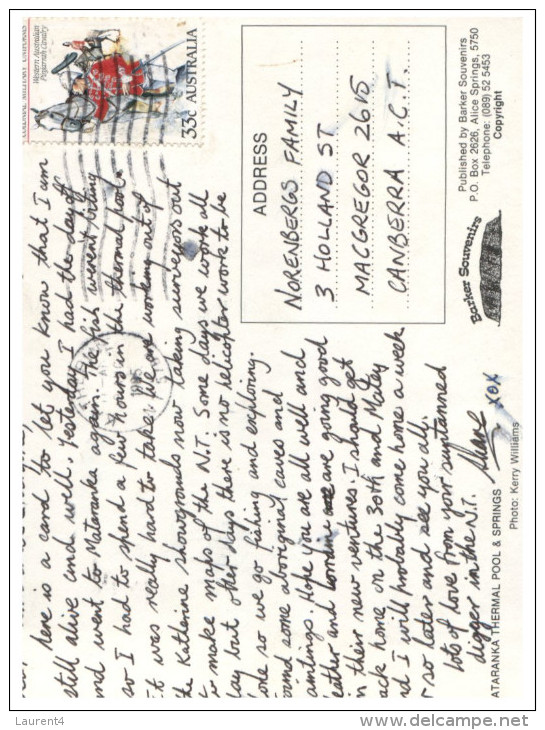 here is a card to let you know that I am
still alive and well. Yesterday I had the day off
and went to Mataranka again. The fish weren't biting
so I had to spend a few hours in the thermal pool.
It was really hard to take. We are working out of
the Katherine showgrounds now taking surveyors out
to make maps of the N.T. Some days we work all
day but other days there is no helicopter work to be
done so we go fishing and exploring.
found some aboriginal caves and
aintings. Hope you are all well and
eather and Lorraine are going good
in their new ventures. I should get
ack home on the 30th and Matey
nd I will probably come home a week
r so later and see you all.
Lots of love from your suntanned
digger in the N.T.
Shane XOX
ATARANKA THERMAL POOL & SPRINGS
Photo: Kerry Williams
COLONIAL MILITARY UNIFORMS
Western Australian
Pinjarrah Cavalry
33c AUSTRALIA
ADDRESS
NORENBERGS FAMILY
3 HOLLAND ST
MACGREGOR 2615
CANBERRA A.C.T.
Barker Souvenirs
Published by Barker Souvenirs
P.O. Box 2626, Alice Springs, 5750
Telephone: (089) 52 5453
Copyright
Laurent4